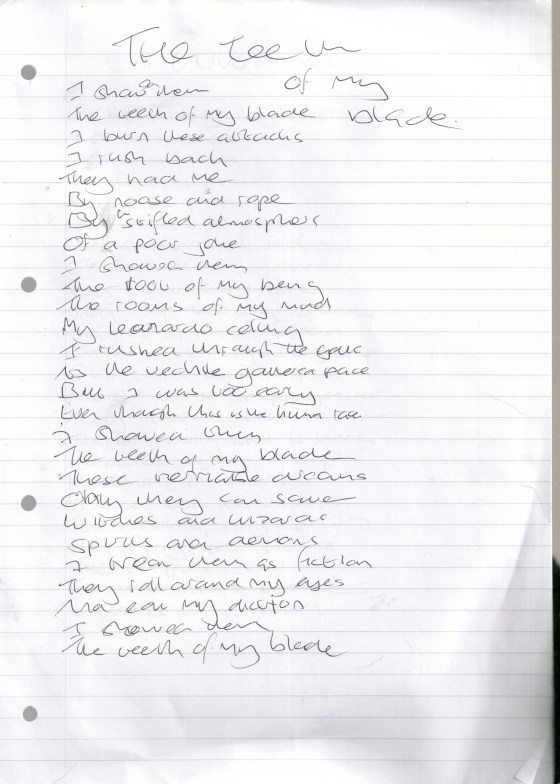 The Teeth
of my
blade.
I showed them
The teeth of my blade
I burn these attacks
I rush back
They had me
By noose and rope
By a stifled atmosphere
Of a poor joke
I showed them
The tool of my being
The rooms of my mind
My Leonardo ceiling
I rushed through the
As the vehicle gathered pace
But I was too early
Even though this is the human race
I showed them
The teeth of my blade
These veritable dreams
Only they can save
Witches and wizards
Spirits and demons
I them as fiction
They roll around my eyes
And eat my diction
I showed them
The teeth of my blade